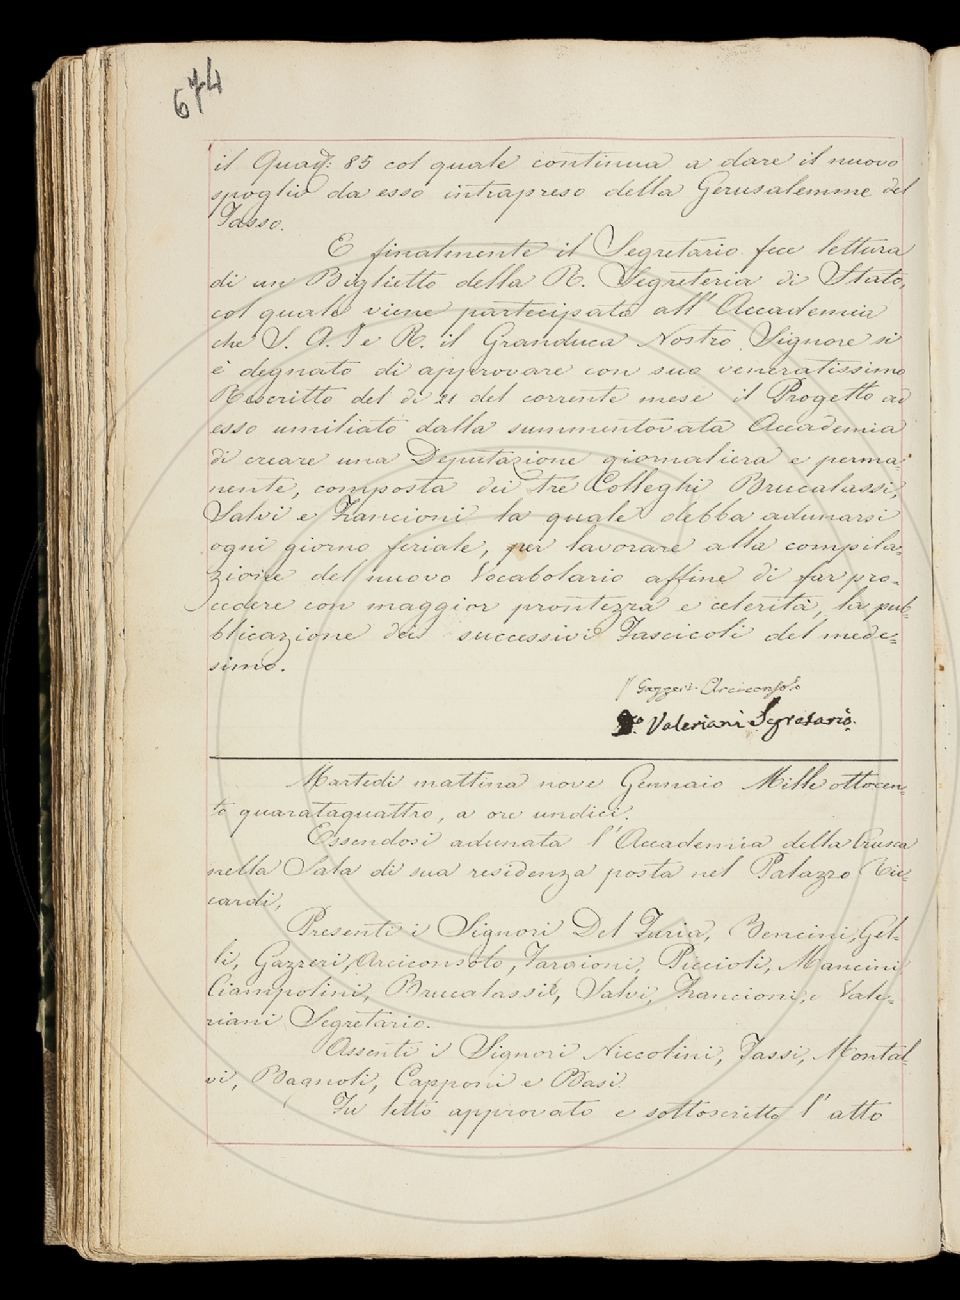 674
il Quad: 85 col quale continua a dare il nuovo
spoglio da esso intrapreso della Gerusalemme del
Tasso.
E finalmente il Segretario fece lettura
di un Biglietto della R. Segreteria di Stato,
col quale viene partecipato all'Accademia
che S. A. I e R. il Granduca Nostro Signore si
è degnato di approvare con suo veneratissimo
Rescritto del dì 21 del corrente mese il Progetto ad
esso umiliato dalla summentovata Accademia
di creare una Deputazione giornaliera e perma-
nente, composta dei tre Colleghi Brucalassi,
Salvi e Zancioni la quale debba adunarsi
ogni giorno feriale, per lavorare alla compila-
zione del nuovo Vocabolario affine di far pro-
cedere con maggior prontezza e celerità, la pub-
blicazione dei successivi Fascicoli del mede-
simo.
Gazzeri Arciconsolo
Valeriani Segretario.
Martedì mattina nove Gennaio Mille ottocen-
to quarataquattro, a ore undici.
Essendosi adunata l'Accademia della Crusca
nella Sala di sua residenza posta nel Palazzo Ric-
cardi,
Presenti i Signori Del Furia, Bencini, Gel-
li, Gazzeri, Arciconsolo, Targioni, Piccioli, Mancini
Ciampolini, Brucalassi, Salvi, Zancioni, e Vale-
riani Segretario.
Assenti i Signori Niccolini, Tassi, Montal-
vi, Bagnoli, Capponi e Basi.
Fu letto approvato e sottoscritto l'atto